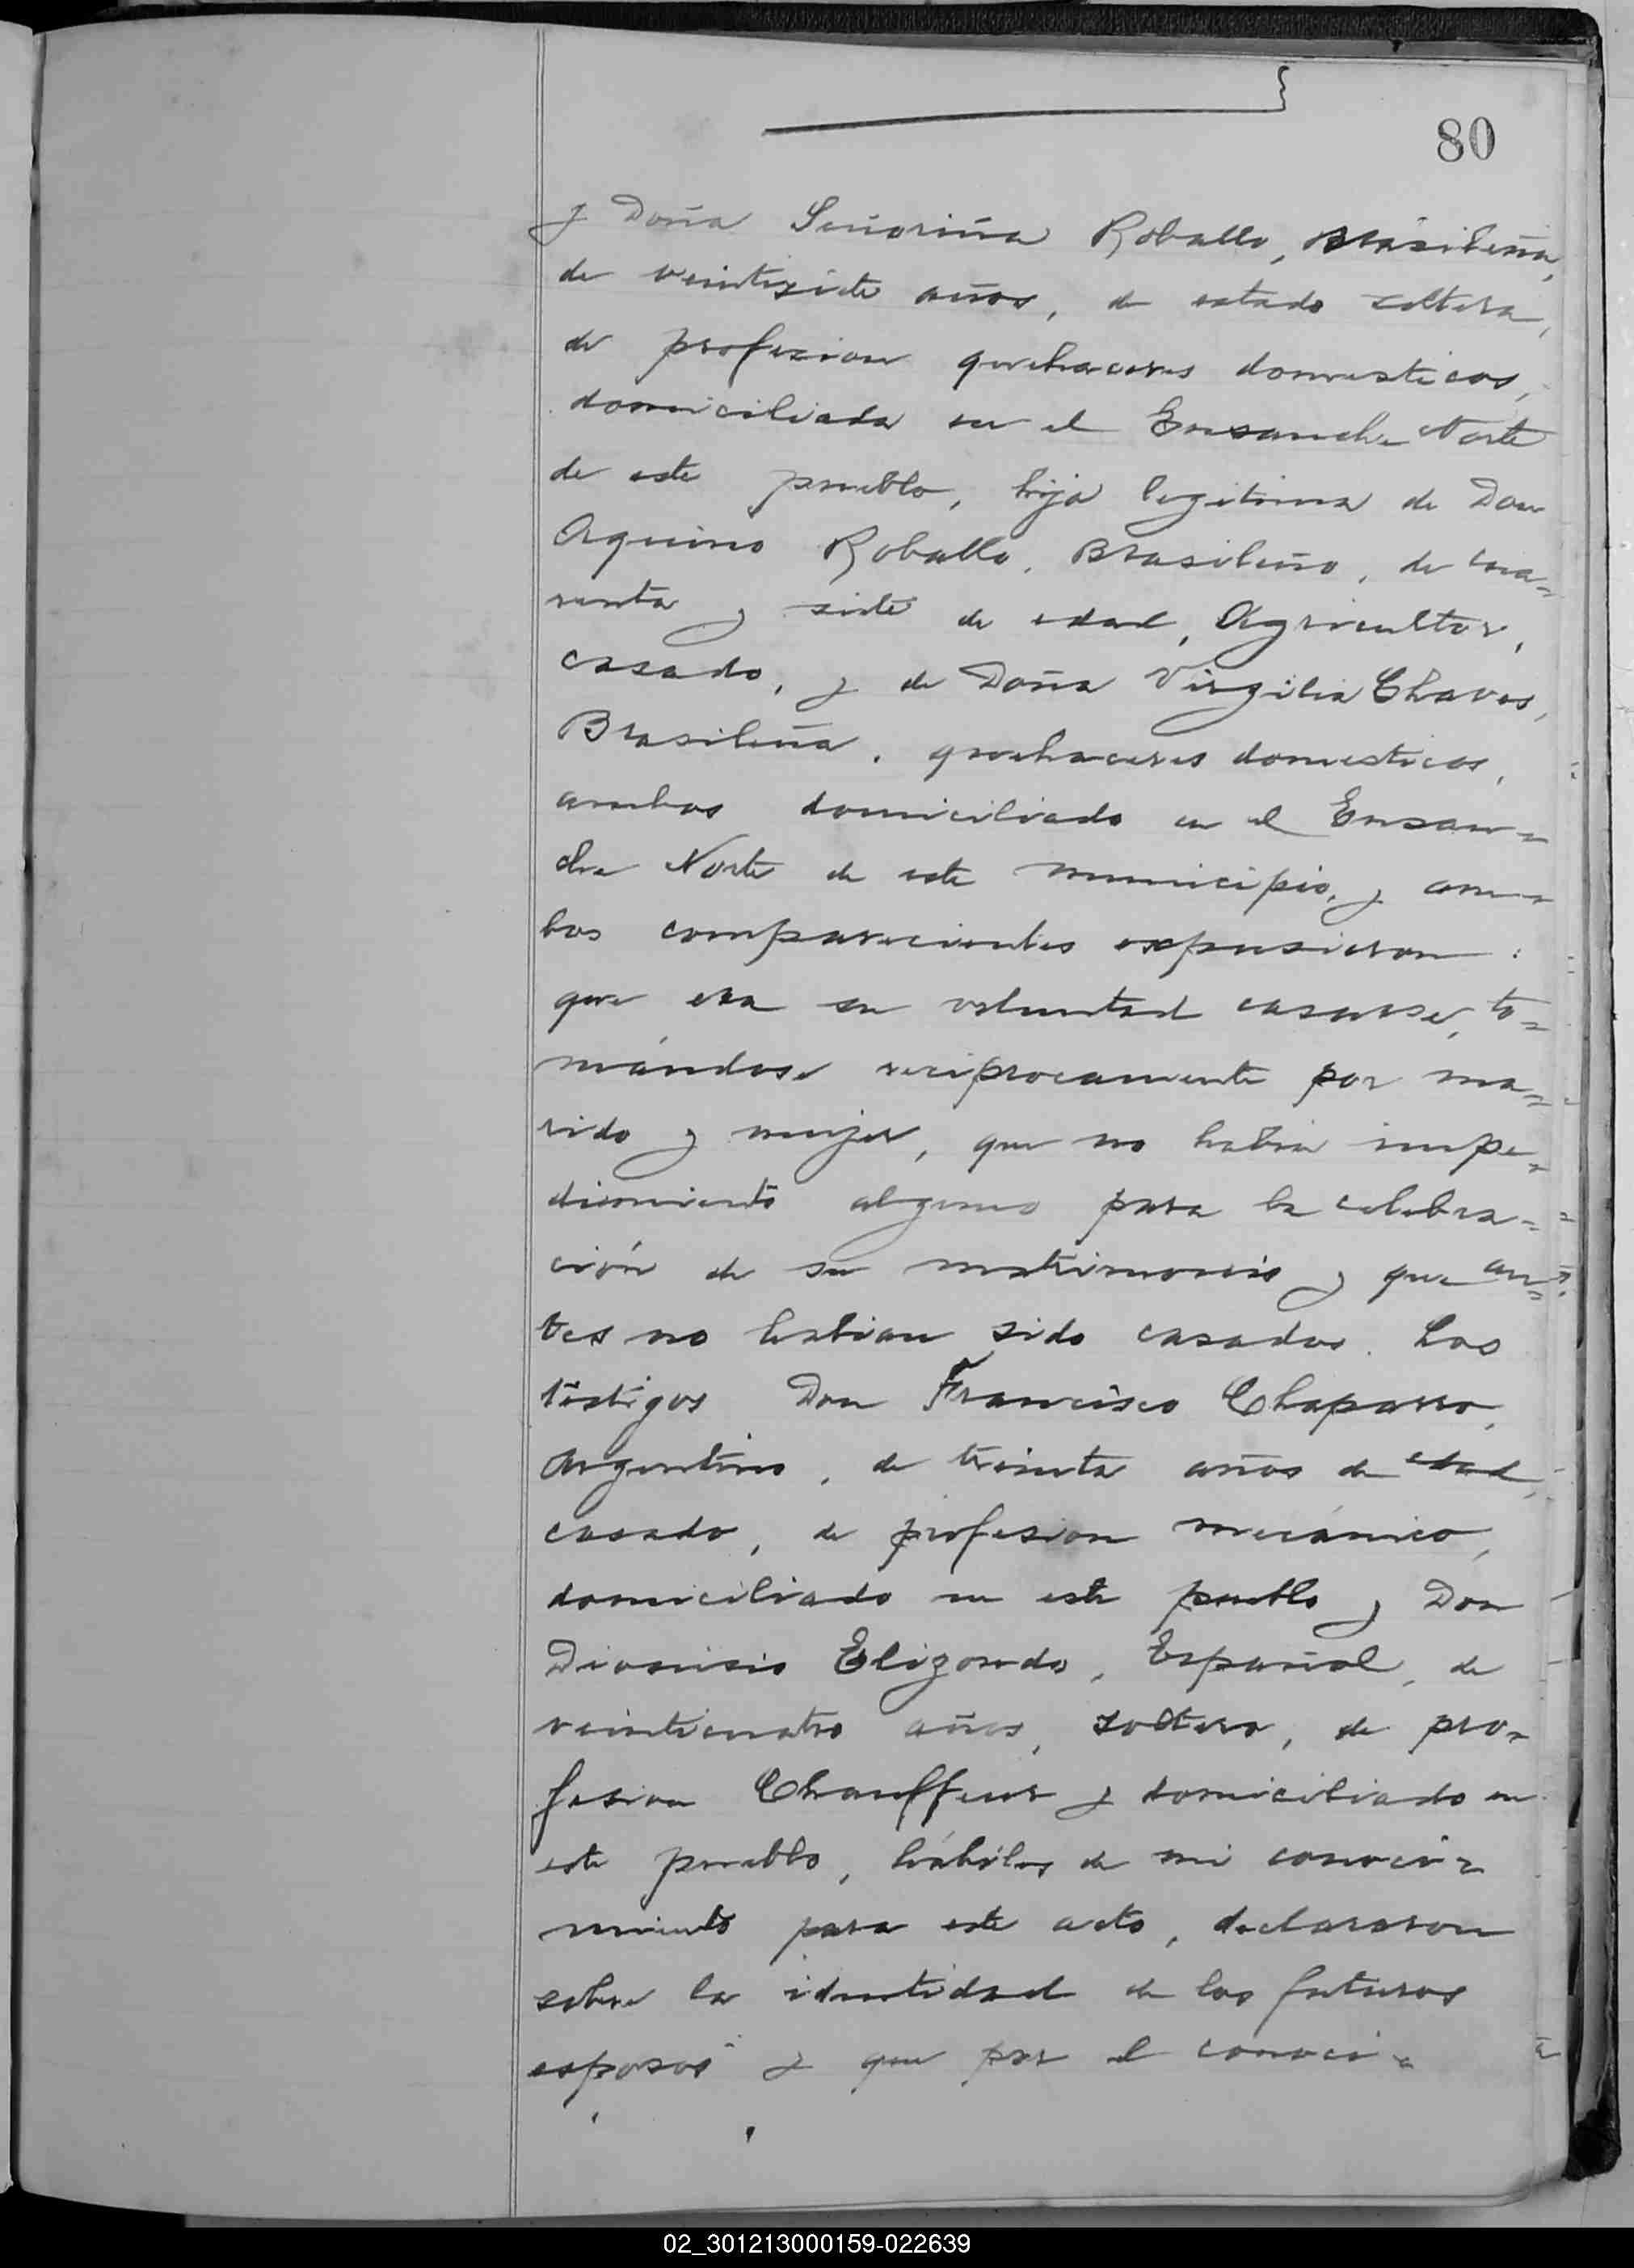 80
y Doña Señoriña Roballo, Brasileña,
de veintisiete años, de estado soltera,
de profesion quehaceres domesticos,
domiciliada en el Ensanche Norte
de este pueblo, hija legitima de Don
Aquino Roballo, Brasileño, de cua=
renta y siete de edad, Agricultor,
casado, y de Doña Virgilia Chaves,
Brasileña, quehaceres domesticos,
ambos domiciliado en el Ensan=
che Norte de este municipio, y am=
bos comparecientes expusieron:
que era su voluntad casarse, to=
mándose reciprocamente por ma=
rido y mujer, que no habia impe=
dimiento alguno para la celebra=
ción de su matrimonio y que an=
tes no habian sido casados. Los
testigos Don Francisco Chaparro,
Argentino, de treinta años de edad,
casado, de profesion mecánico,
domiciliado en este pueblo y Don
Dionisio Elizondo, Español, de
veinticuatro años, soltero, de pro=
fesion Chauffeur y domiciliado en
este pueblo, hábiles de mi conoci=
miento para este acto, declararon
sobre la identidad de los futuros
esposos y que por el conoci=
02_301213000159-022639